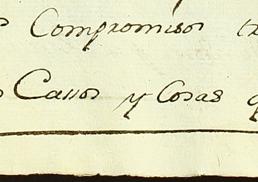 Compromisos
Casos y Cosas